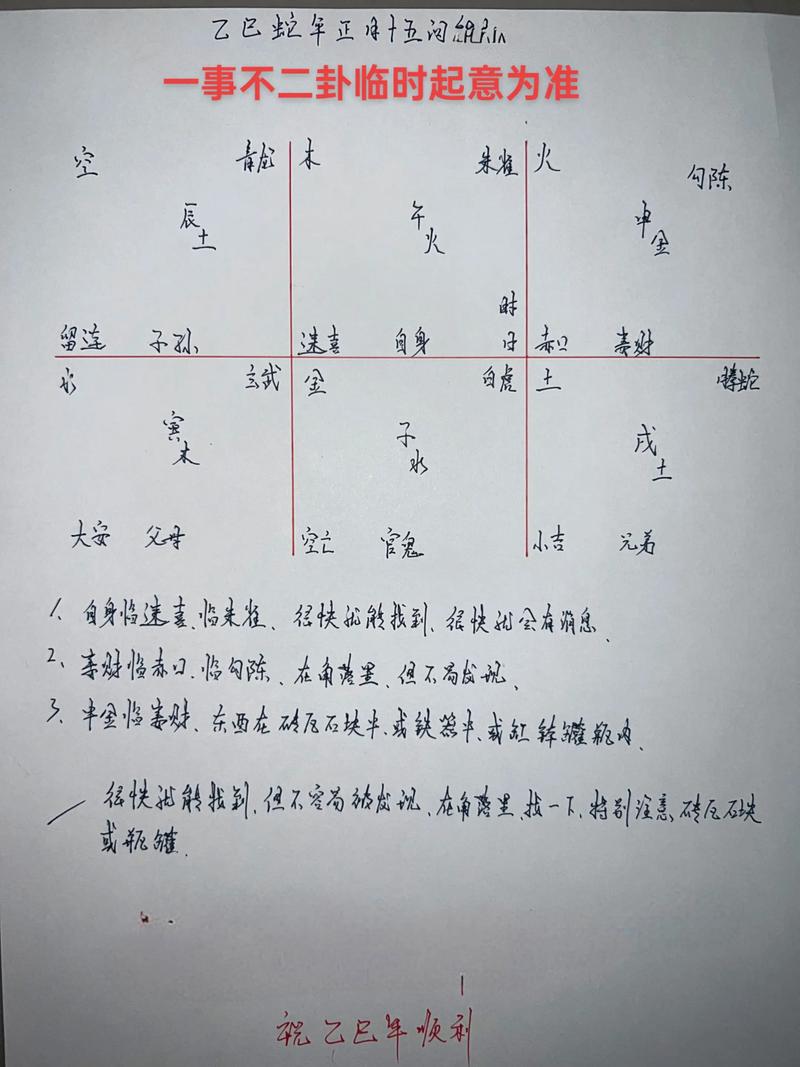 乙巳蛇年正月十五问
一事不二卦临时起意为准
空 青龙 木 朱雀 火 勾陈
辰土 午火 申金
时
留连 子孙 速喜 自身 日 赤口 妻财
水 玄武 金 白虎 土 螣蛇
寅木 子水 戌土
大安 父母 空亡 官鬼 小吉 兄弟
1、自身临速喜、临朱雀、很快就能找到、很快就会有消息、
2、妻财临赤口、临勾陈、在角落里、但不易发现、
3、申金临妻财、东西在砖瓦石块中、或铁器中、或缸钵罐瓶内、
很快就能找到、但不容易被发现、在角落里、找一下、特别注意砖瓦石块
或瓶罐、
祝乙巳年顺利